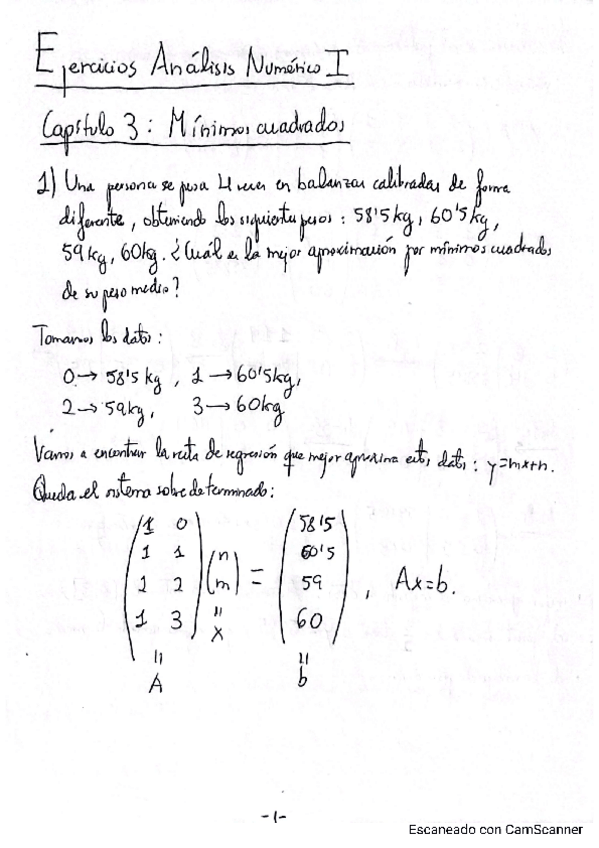 Ejercicios Análisis Numérico I
Capítulo 3: Mínimos cuadrados
1) Una persona se pesa 4 veces en balanzas calibradas de forma
diferente, obteniendo los siguientes pesos: 58'5kg, 60'5kg,
59kg, 60kg. ¿Cuál es la mejor aproximación por mínimos cuadrados
de su peso medio?
Tomamos los datos:
0 → 58'5 kg, 1 → 60'5kg,
2 → 59kg, 3 → 60kg
Vamos a encontrar la recta de regresión que mejor aproxima estos datos: y=mx+n.
Queda el sistema sobredeterminado:
1 0 58'5
1 1 n 60'5
1 2 m = 59 , Ax=b.
1 3 = 60
= x =
A b
-1-
Escaneado con CamScanner